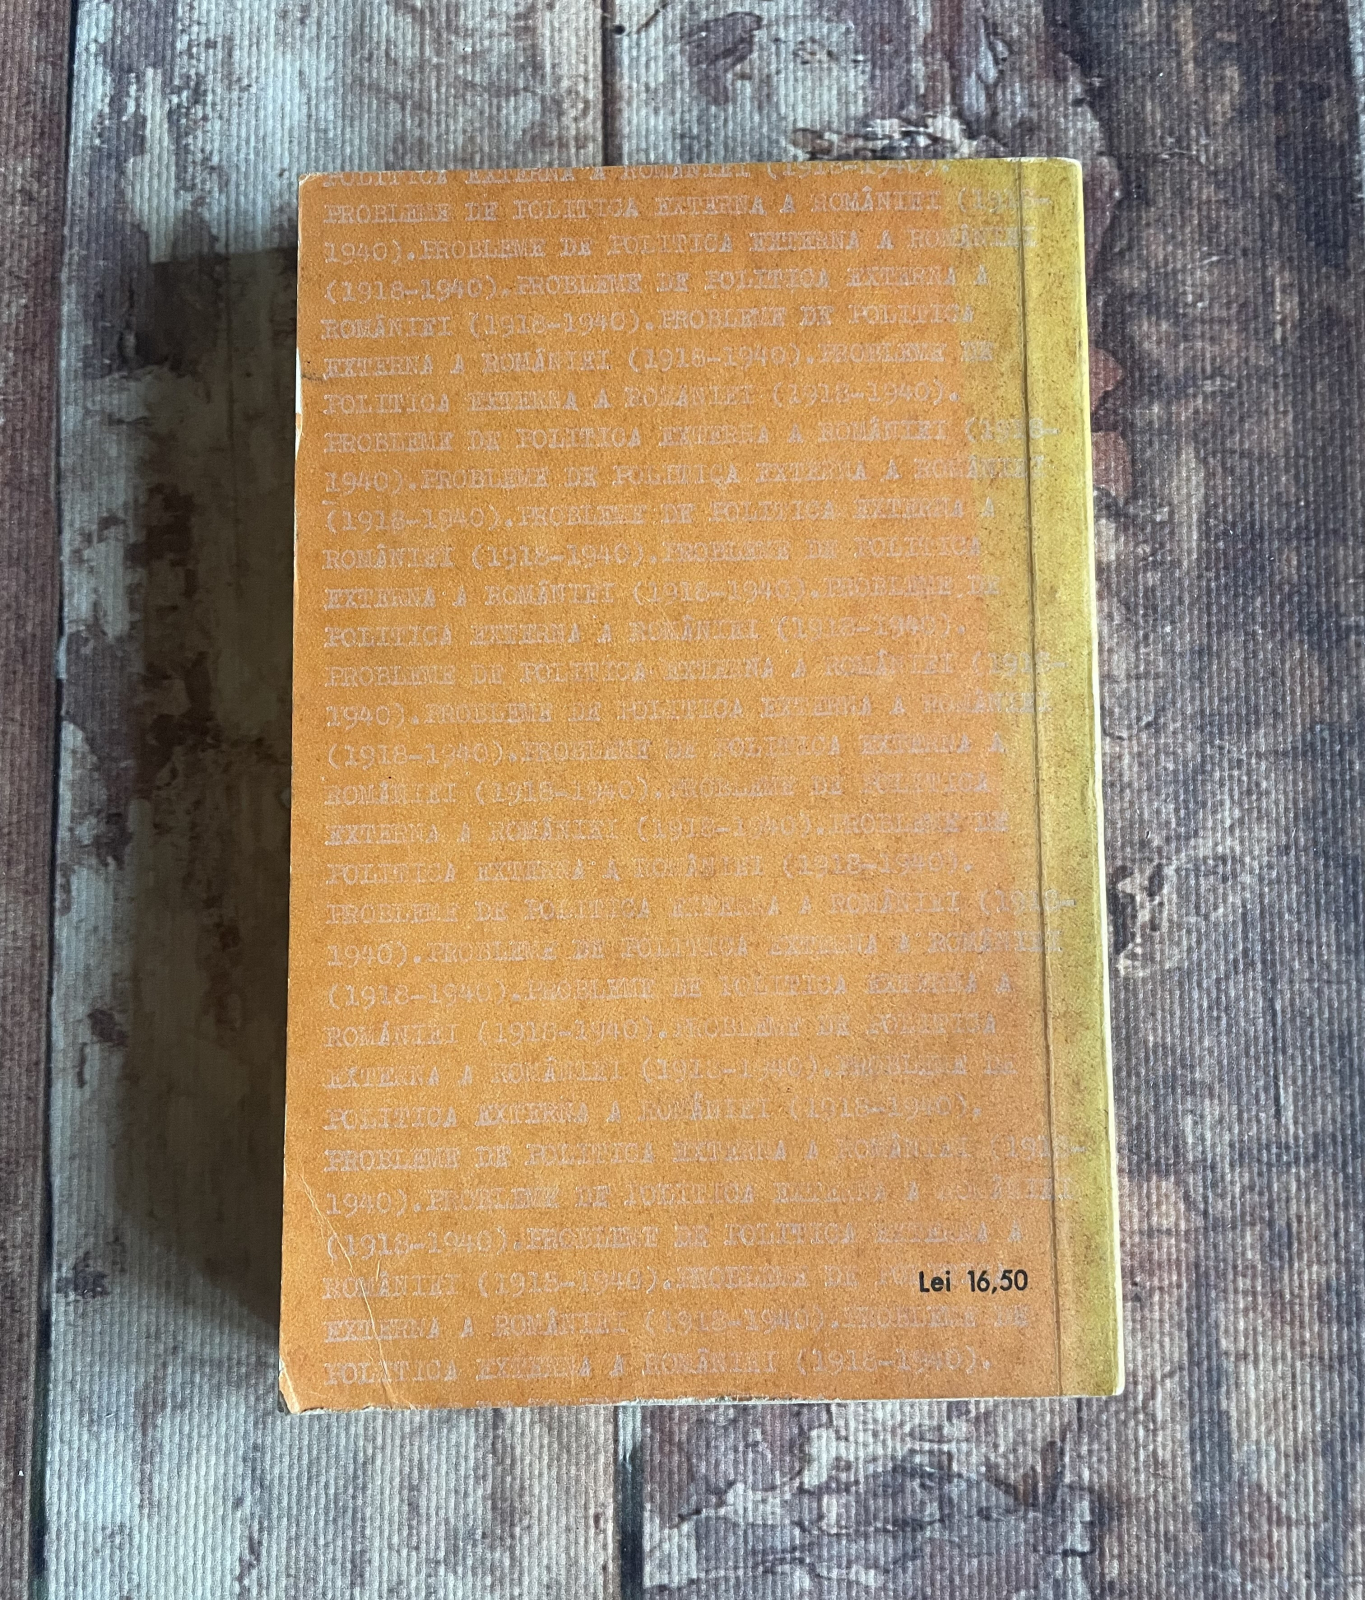 POLITICA EXTERNA A ROMÂNIEI (1918-1940).
PROBLEME DE POLITICA EXTERNA A ROMÂNIEI (1918-
1940).PROBLEME DE POLITICA EXTERNA A ROMÂNIEI
(1918-1940).PROBLEME DE POLITICA EXTERNA A
ROMÂNIEI (1918-1940).PROBLEME DE POLITICA
EXTERNA A ROMÂNIEI (1918-1940).PROBLEME DE
POLITICA EXTERNA A ROMÂNIEI (1918-1940).
PROBLEME DE POLITICA EXTERNA A ROMÂNIEI (1918-
1940).PROBLEME DE POLITICA EXTERNA A ROMÂNIEI
(1918-1940).PROBLEME DE POLITICA EXTERNA A
ROMÂNIEI (1918-1940).PROBLEME DE POLITICA
EXTERNA A ROMÂNIEI (1918-1940).PROBLEME DE
POLITICA EXTERNA A ROMÂNIEI (1918-1940).
PROBLEME DE POLITICA EXTERNA A ROMÂNIEI (1918-
1940).PROBLEME DE POLITICA EXTERNA A ROMÂNIEI
(1918-1940).PROBLEME DE POLITICA EXTERNA A
ROMÂNIEI (1918-1940).PROBLEME DE POLITICA
EXTERNA A ROMÂNIEI (1918-1940).PROBLEME DE
POLITICA EXTERNA A ROMÂNIEI (1918-1940).
PROBLEME DE POLITICA EXTERNA A ROMÂNIEI (1918-
1940).PROBLEME DE POLITICA EXTERNA A ROMÂNIEI
(1918-1940).PROBLEME DE POLITICA EXTERNA A
ROMÂNIEI (1918-1940).PROBLEME DE POLITICA
EXTERNA A ROMÂNIEI (1918-1940).PROBLEME DE
POLITICA EXTERNA A ROMÂNIEI (1918-1940).
PROBLEME DE POLITICA EXTERNA A ROMÂNIEI (1918-
1940).PROBLEME DE POLITICA EXTERNA A ROMÂNIEI
(1918-1940).PROBLEME DE POLITICA EXTERNA A
ROMÂNIEI (1918-1940).PROBLEME DE
Lei 16,50
EXTERNA A ROMÂNIEI (1918-1940).PROBLEME DE
POLITICA EXTERNA A ROMÂNIEI (1918-1940).